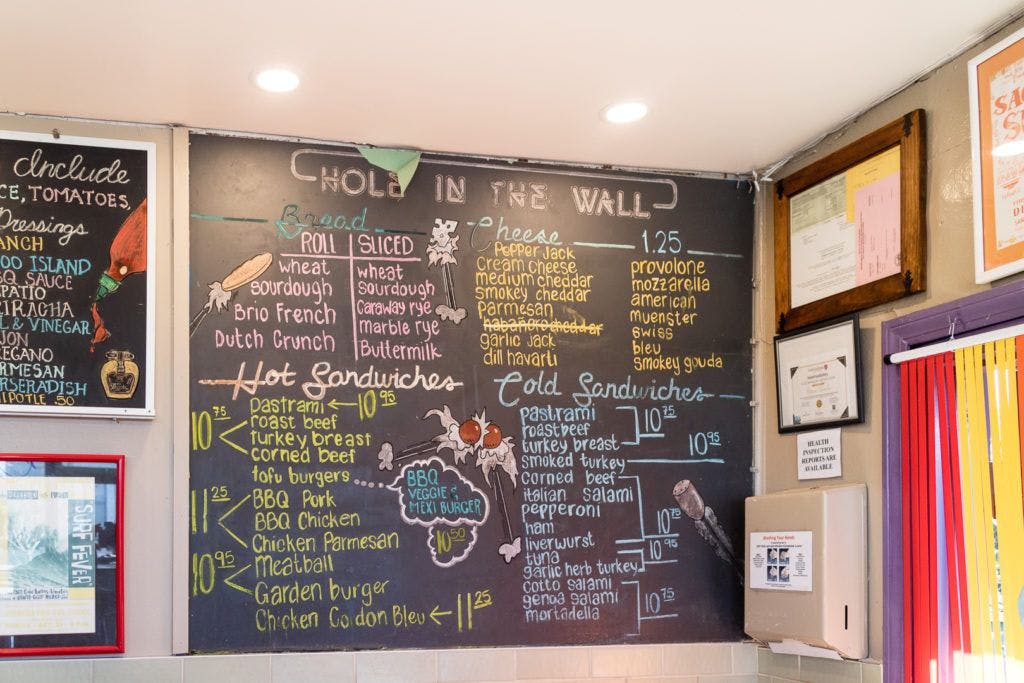 Include
CE, TOMATOES,
Dressings
ANCH
OO ISLAND
BQ SAUCE
PATIO
RIRACHA
L & VINEGAR
JON
REGANO
ARMESAN
RSERADISH
IPOTLE .50
SURF FEVER
HOLE IN THE WALL
Bread
ROLL
wheat
sourdough
Brio French
Dutch Crunch
SLICED
wheat
sourdough
Caraway rye
marble rye
Buttermilk
Cheese 1.25
Pepper Jack
Cream cheese
medium cheddar
smokey cheddar
Parmesan
habañero cheddar
garlic jack
dill havarti
provolone
mozzarella
american
muenster
swiss
bleu
smokey gouda
Hot Sandwiches
Pastrami 10 95
10 75
roast beef
turkey breast
corned beef
tofu burgers
BBQ
VEGGIE &
MEXI BURGER
10 50
11 25
BBQ Pork
BBQ Chicken
Chicken Parmesan
10 95
Meatball
Garden burger
Chicken Cordon Bleu 11 25
Cold Sandwiches
pastrami
roast beef
turkey breast
10 75
smoked turkey 10 95
corned beef
italian salami
pepperoni
ham
liverwurst
10 75
tuna
10 95
garlic herb turkey
cotto salami
genoa salami
mortadella
10 75
HEALTH
INSPECTION
REPORTS ARE
AVAILABLE